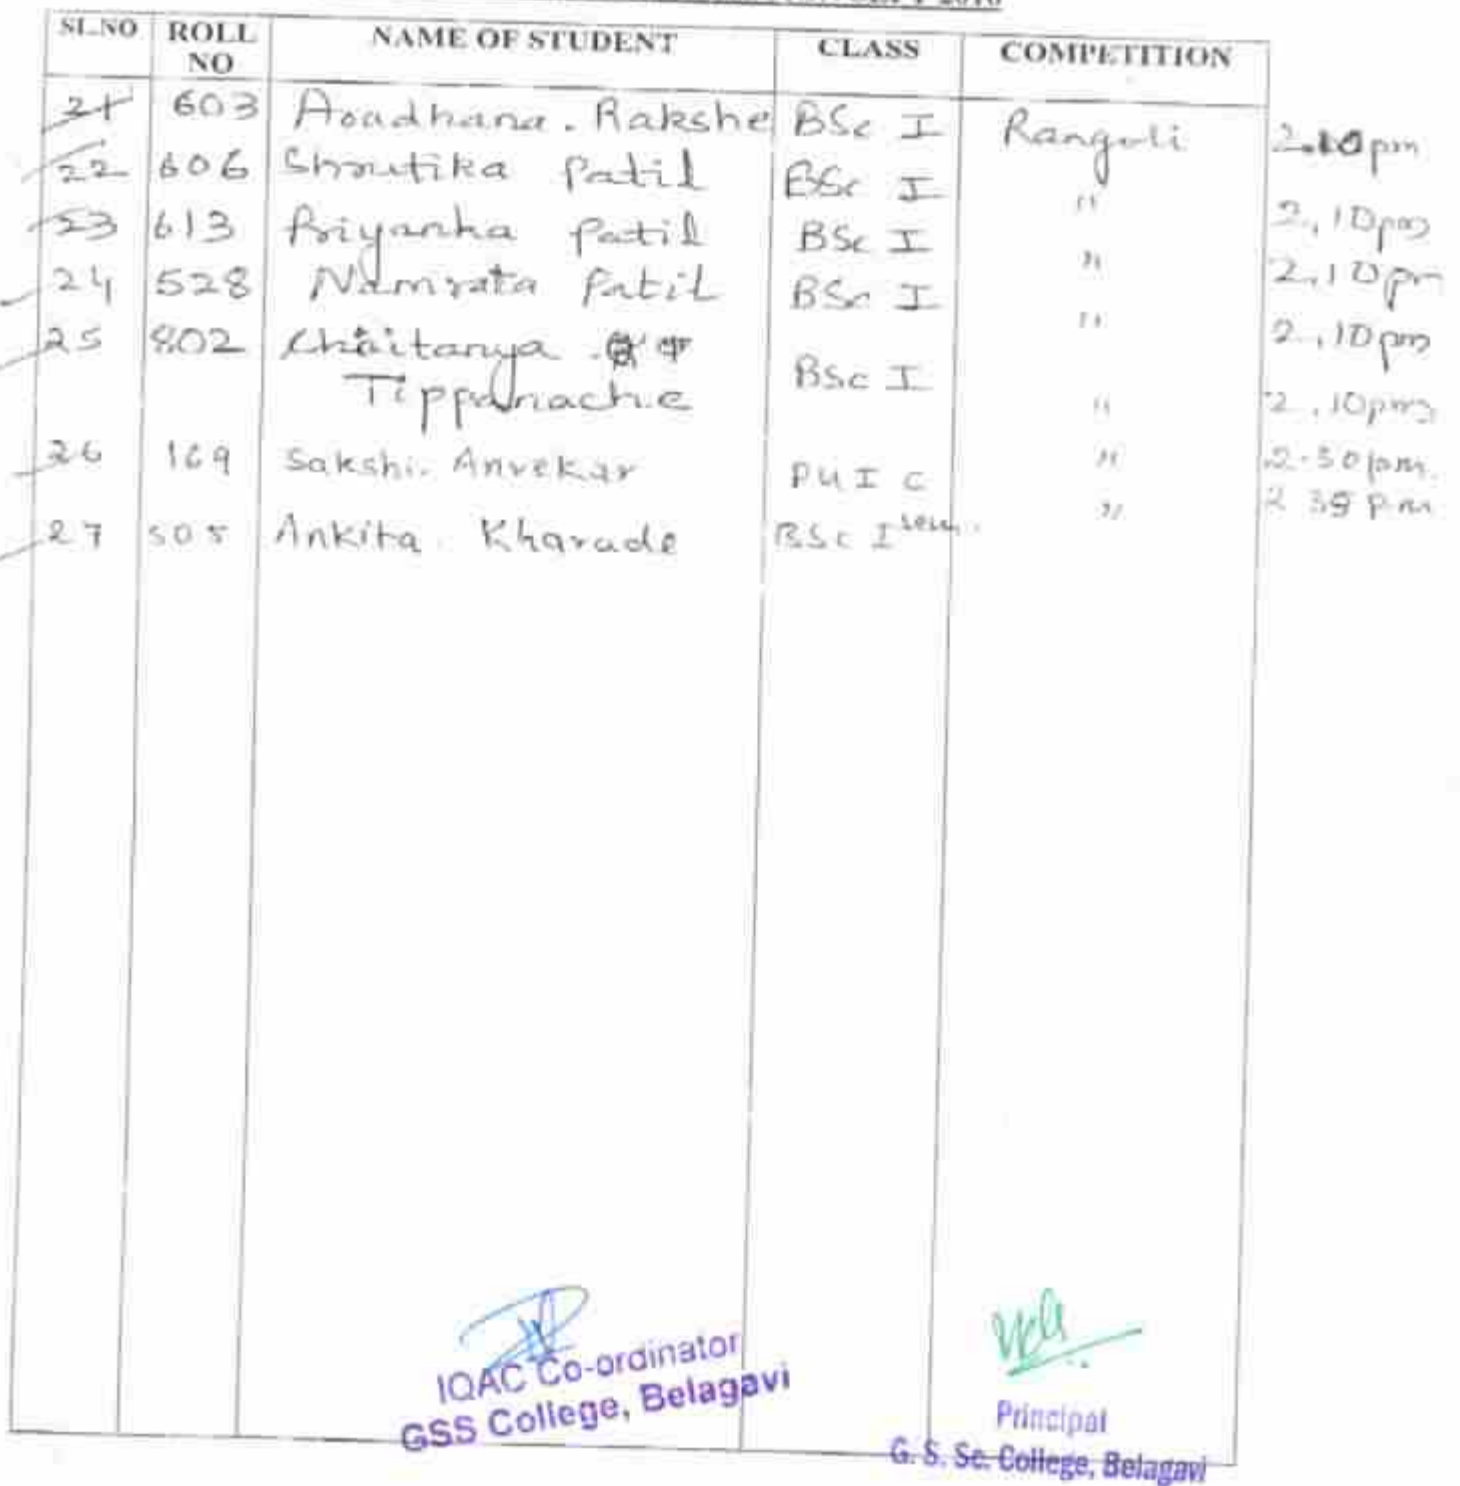 SL.NO ROLL NO NAME OF STUDENT CLASS COMPETITION
21 603 Aradhana. Rakshe BSc I Rangoli 2.10 pm
22 606 Shrutika Patil BSc I " 2.10 pm
23 613 Priyanka Patil BSc I " 2.10 pm
24 528 Namrata Patil BSc I " 2.10 pm
25 802 Chaitanya
Tippanache BSc I " 2.10 pm
26 169 Sakshi. Anvekar PU I C " 2.30 pm.
27 505 Ankita. Kharade BSc I sem. " 2 35 pm
IQAC Co-ordinator
GSS College, Belagavi
Principal
G. S. Sc. College, Belagavi